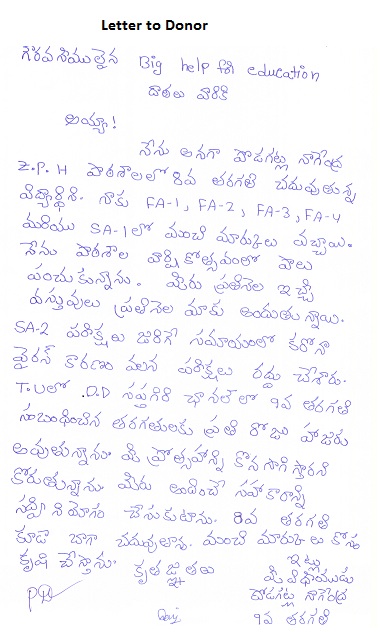 Letter to Donor
గౌరవనీయులైన Big help for education
దాతలు వారికి
అయ్యా!
నేను అనగా పొడగట్ల నాగేంద్ర
Z.P.H పాఠశాలలో 8వ తరగతి చదువుతున్న
విద్యార్థిని. నాకు FA-1, FA-2, FA-3, FA-4
మరియు SA-1లో మంచి మార్కులు వచ్చాయి.
నేను పాఠశాల వార్షికోత్సవంలో పాలు
పంచుకున్నాను. మీరు ప్రతినెల ఇచ్చే
వస్తువులు ప్రతినెల మాకు అందుతున్నాయి.
SA-2 పరీక్షలు జరిగే సమయంలో కరోనా
వైరస్ కారణం వలన పరీక్షలు రద్దు చేశారు.
T.Vలో .D.D సప్తగిరి ఛానల్‌లో 9వ తరగతి
సంబంధించిన తరగతులకు ప్రతి రోజు హాజరు
అవుతున్నాను మీ ప్రోత్సహాన్ని కొనసాగిస్తారని
కోరుతున్నాను మీరు అందించే సహకారాన్ని
సద్వినియోగం చేసుకుటాను. 8వ తరగతి
కూడా బాగా చదువుతాను. మంచి మార్కులు కోసం
కృషి చేస్తాను.
కృతజ్ఞతలు
ఇట్లు
మీ విధేయుడు
పొడగట్ల నాగేంద్ర
9వ తరగతి